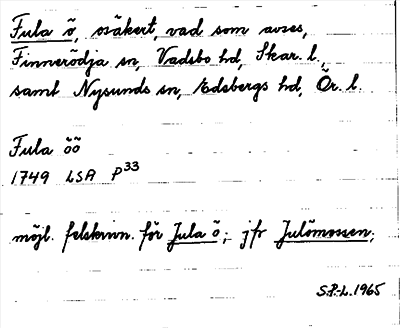 Fula ö, osäkert, vad som avses,
Finnerödja sn, Vadsbo hd, Skar. l.,
samt Nysunds sn, Edsbergs hd, Ör. l.
Fula öö
1749 LSA P33
möjl. felskrivn. för Jula ö; jfr Julömossen;
S.P-L. 1965